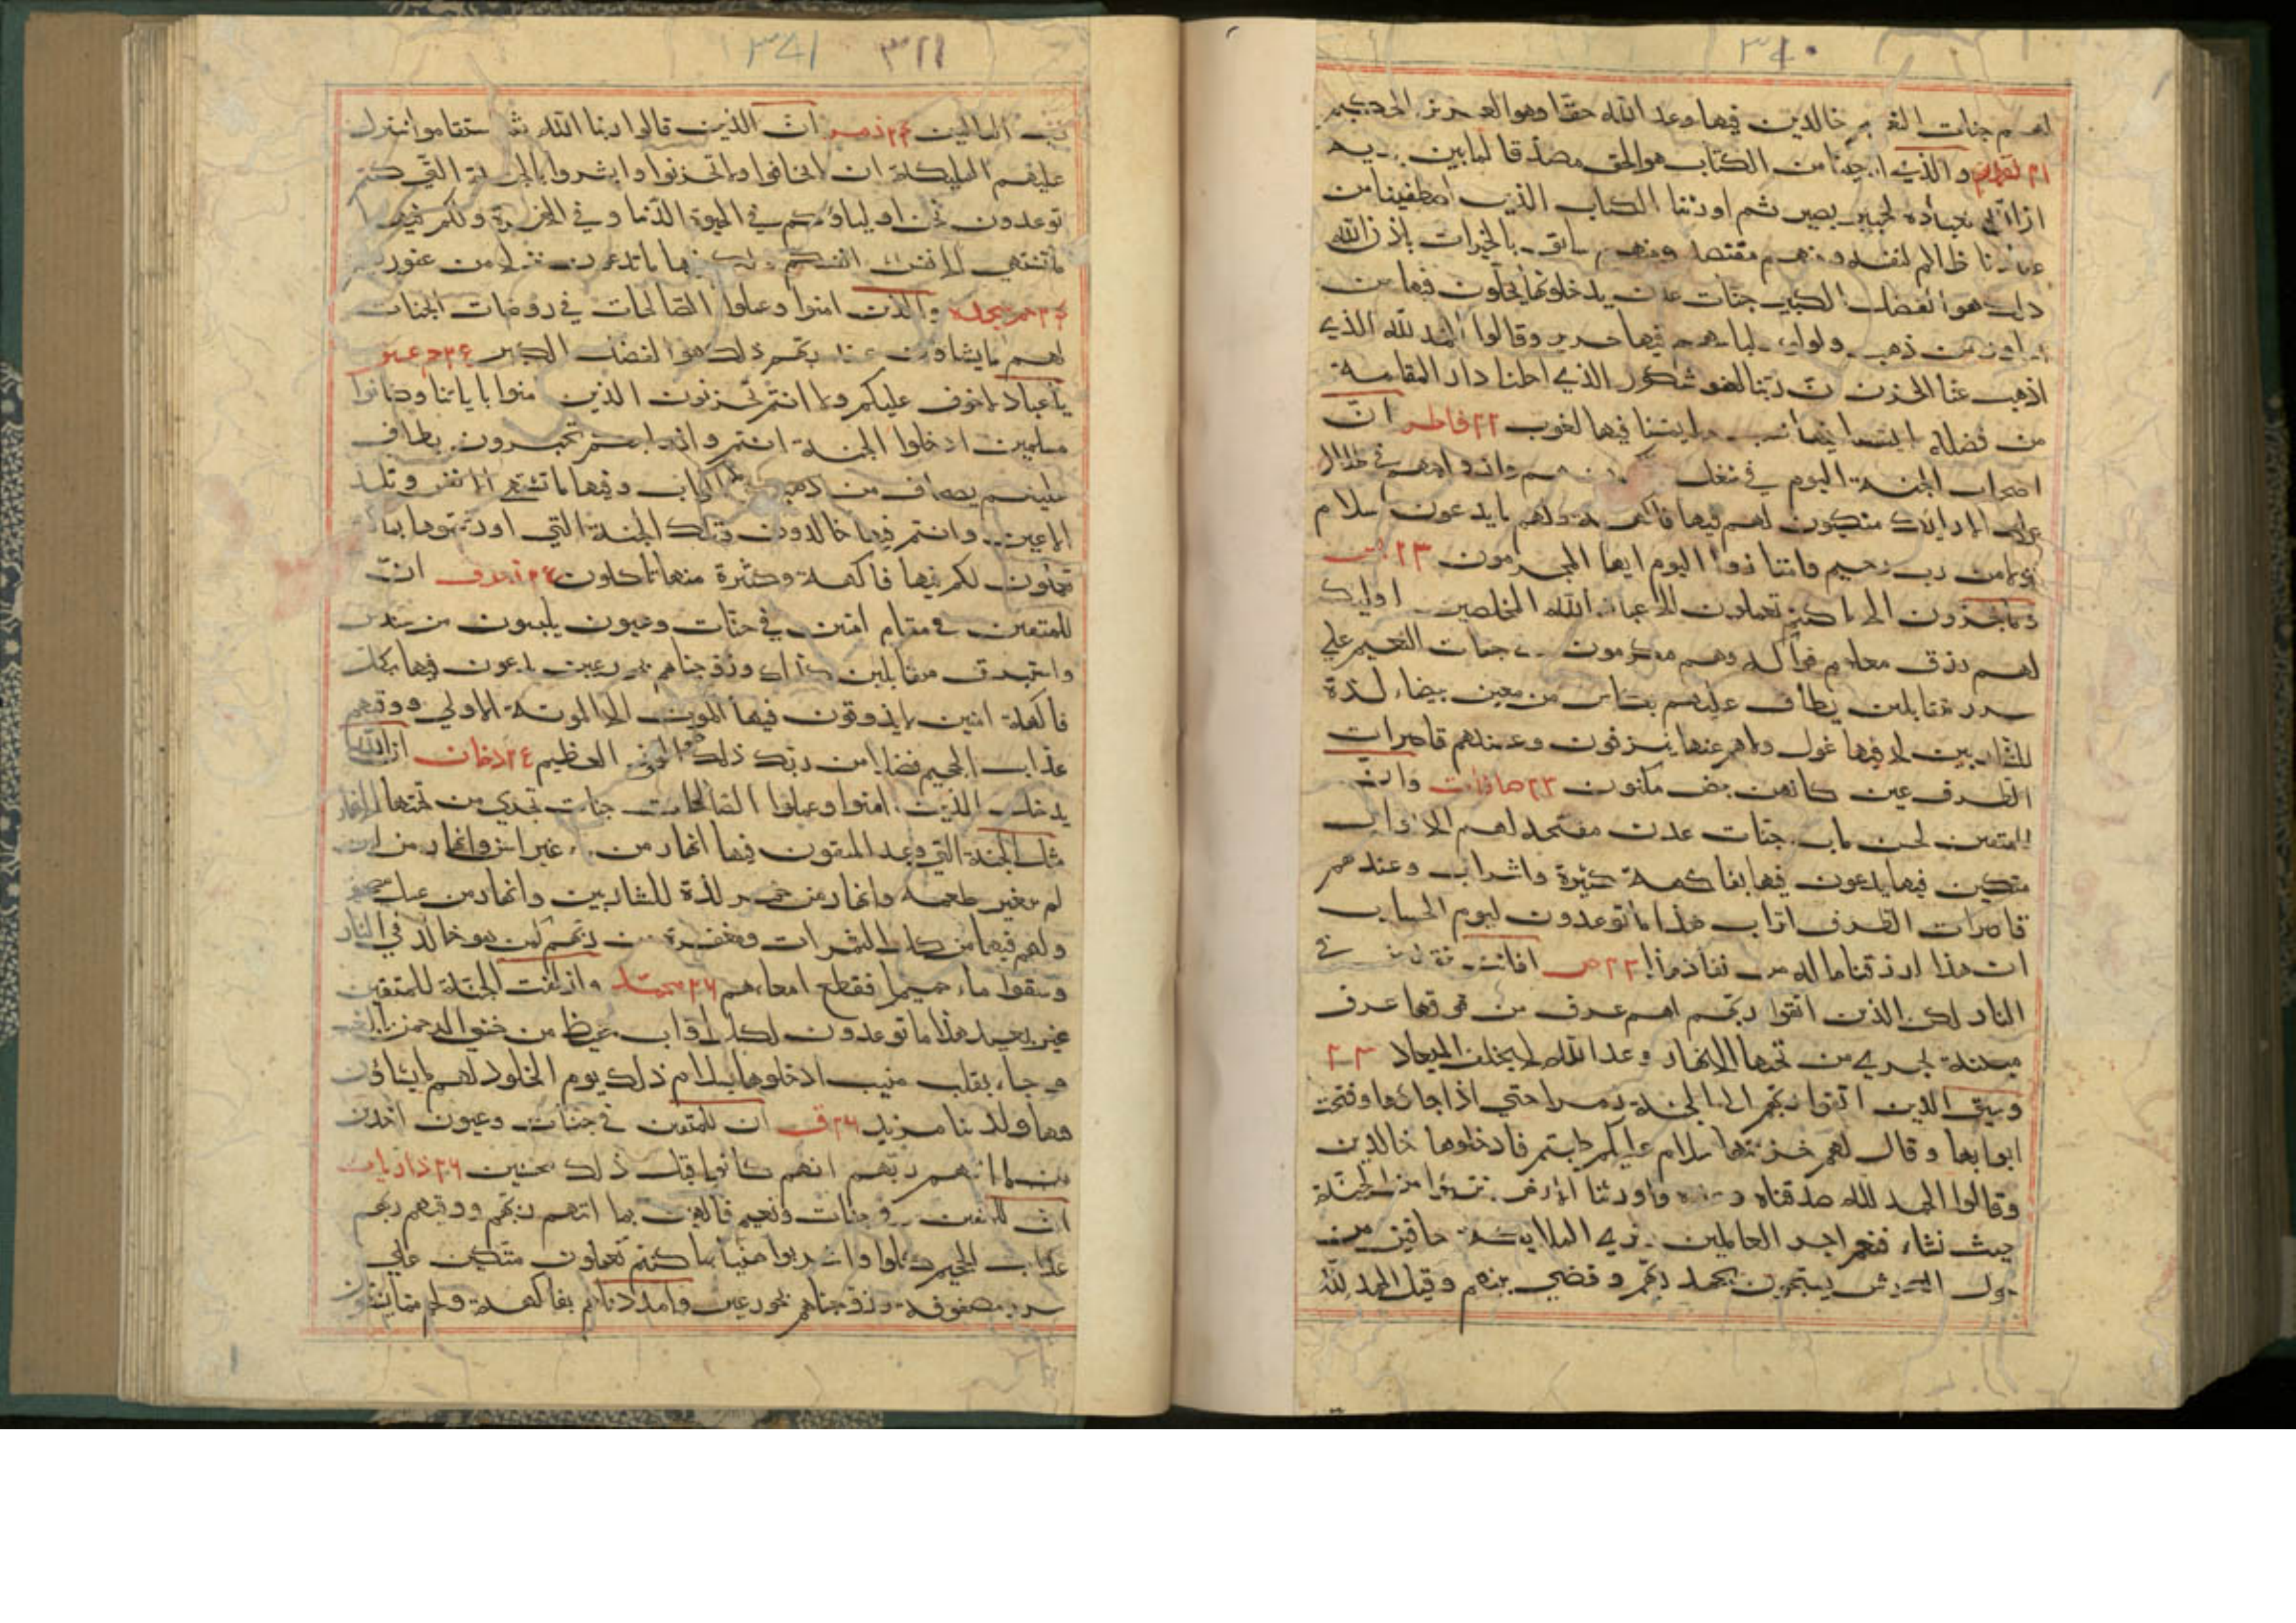 ٣٤٠
لهم جنات النعيم خالدين فيها وعد الله حقا وهو العزيز الحكيم
٢١ لقمان والذي او حينا من الكتاب هو الحق مصدقا لما بين يديه
ان الله بعباده لخبير بصير ثم اورثنا الكتاب الذين اصطفينا من
عبادنا ظالم لنفسه ومنهم مقتصد ومنهم سابق بالخيرات باذن الله
ذلك هو الفضل الكبير جنات عدن يدخلونها يحلون فيها من
اساور من ذهب ولولوا ولباسهم فيها حرير وقالوا الحمد لله الذي
اذهب عنا الحزن ان ربنا لغفور شكور الذي احلنا دار المقامة
من فضله لا يمسنا فيها نصب ولا يمسنا فيها لغوب ٢٢ فاطر ان
اصحاب الجنة اليوم في شغل هم وازواجهم في ظلال
على الارايك متكيون لهم فيها فاكهة ولهم ما يدعون سلام
قولا من رب رحيم وامتازوا اليوم ايها المجرمون ٢٣
وما تجزون الا ما كنتم تعملون الا عباد الله المخلصين اوليك
لهم رزق معلوم فواكه وهم مكرمون في جنات النعيم علي
سرر متقابلين يطاف عليهم بكاس من معين بيضاء لذة
للشاربين لا فيها غول ولا هم عنها ينزفون وعندهم قاصرات
الطرف عين كانهن بيض مكنون ٢٣ صافات وان
للمتقين لحسن ماب جنات عدن مفتحة لهم الابواب
متكين فيها يدعون فيها بفاكهة كثيرة وشراب وعندهم
قاصرات الطرف اتراب هذا ما توعدون ليوم الحساب
ان هذا لرزقنا ما له من نفاد هذا ٢٣ ص افانت تنقذ من في
النار لكن الذين اتقوا ربهم لهم غرف من فوقها غرف
مبنية تجري من تحتها الانهار وعد الله لا يخلف الميعاد ٢٣
وسيق الذين اتقوا ربهم الى الجنة زمرا حتي اذا جاؤها وفتحت
ابوابها وقال لهم خزنتها سلام عليكم طبتم فادخلوها خالدين
وقالوا الحمد لله صدقناه وعده واورثنا الارض نتبوا من الجنة
حيث نشاء فنعم اجر العاملين وتري الملايكة حافين من
حول العرش يسبحون بحمد ربهم وقضي بينهم وقيل الحمد لله
٣٤١ ٣١١
رب العالمين ٢٤ زمر ان الذين قالوا ربنا الله ثم استقاموا تتنزل
عليهم المليكة ان لا تخافوا ولا تحزنوا وابشروا بالجنة التي كنتم
توعدون نحن اولياؤكم في الحيوة الدنيا وفي الاخرة ولكم فيها
ما تشتهي انفسكم ولكم فيها ما تدعون نزلا من غفور رحيم
٢٤ حم سجده والذين امنوا وعملوا الصالحات في روضات الجنات
لهم ما يشاؤن عند ربهم ذلك هو الفضل الكبير ٢٤ حم عسق
يا عباد لا خوف عليكم ولا انتم تحزنون الذين امنوا باياتنا وكانوا
مسلمين ادخلوا الجنة انتم وازواجكم تحبرون يطاف
عليهم بصحاف من ذهب واكواب وفيها ما تشتهي الانفس وتلذ
الاعين وانتم فيها خالدون وتلك الجنة التي اورثتموها بما كنتم
تعملون لكم فيها فاكهة وكثيرة منها تاكلون ٢٤ زخرف ان
للمتقين في مقام امين في جنات وعيون يلبسون من سندس
واستبرق متقابلين كذلك وزوجناهم بحور عين يدعون فيها بكل
فاكهة امنين لا يذوقون فيها الموت الا الموتة الاولي ووقهم
عذاب الجحيم فضلا من ربك ذلك هو الفوز العظيم ٢٤ دخان ان الله
يدخل الذين امنوا وعملوا الصالحات جنات تجري من تحتها الانهار
مثل الجنة التي وعد المتقون فيها انهار من ماء غير اسن وانهار من لبن
لم يتغير طعمه وانهار من خمر لذة للشاربين وانهار من عسل مصفى
ولهم فيها من كل الثمرات ومغفرة من ربهم كمن هو خالد في النار
وسقوا ماء حميما فقطع امعاءهم ٢٦ محمد وازلفت الجنة للمتقين
غير بعيد هذا ما توعدون لكل اواب حفيظ من خشي الرحمن بالغيب
وجاء بقلب منيب ادخلوها بسلام ذلك يوم الخلود لهم ما يشاؤن
فيها ولدينا مزيد ٢٦ ق ان للمتقين في جنات وعيون اخذين
ما اتهم ربهم انهم كانوا قبل ذلك محسنين ٢٦ ذاريات
ان المتقين في جنات ونعيم فاكهين بما اتهم ربهم ووقهم ربهم
عذاب الجحيم كلوا واشربوا هنيا بما كنتم تعملون متكين علي
سرر مصفوفة وزوجناهم بحور عين وامددناهم بفاكهة ولحم مما يشتهون